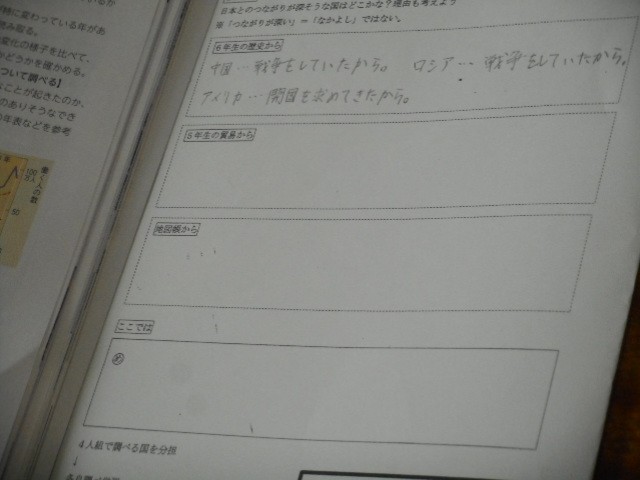 時に変わっている年があ
読み取る。
変化の様子を比べて、
かどうかを確かめる。
ついて調べる】
なことが起きたのか、
のありそうなでき
の年表などを参考
働く人の数
日本とのつながりが深そうな国はどこかな？理由も考えよう
※「つながりが深い」＝「なかよし」ではない。
6年生の歴史から
中国…戦争をしていたから。 ロシア…戦争をしていたから。
アメリカ…開国を求めてきたから。
5年生の貿易から
地図帳から
ここでは
め
4人組で調べる国を分担
↓